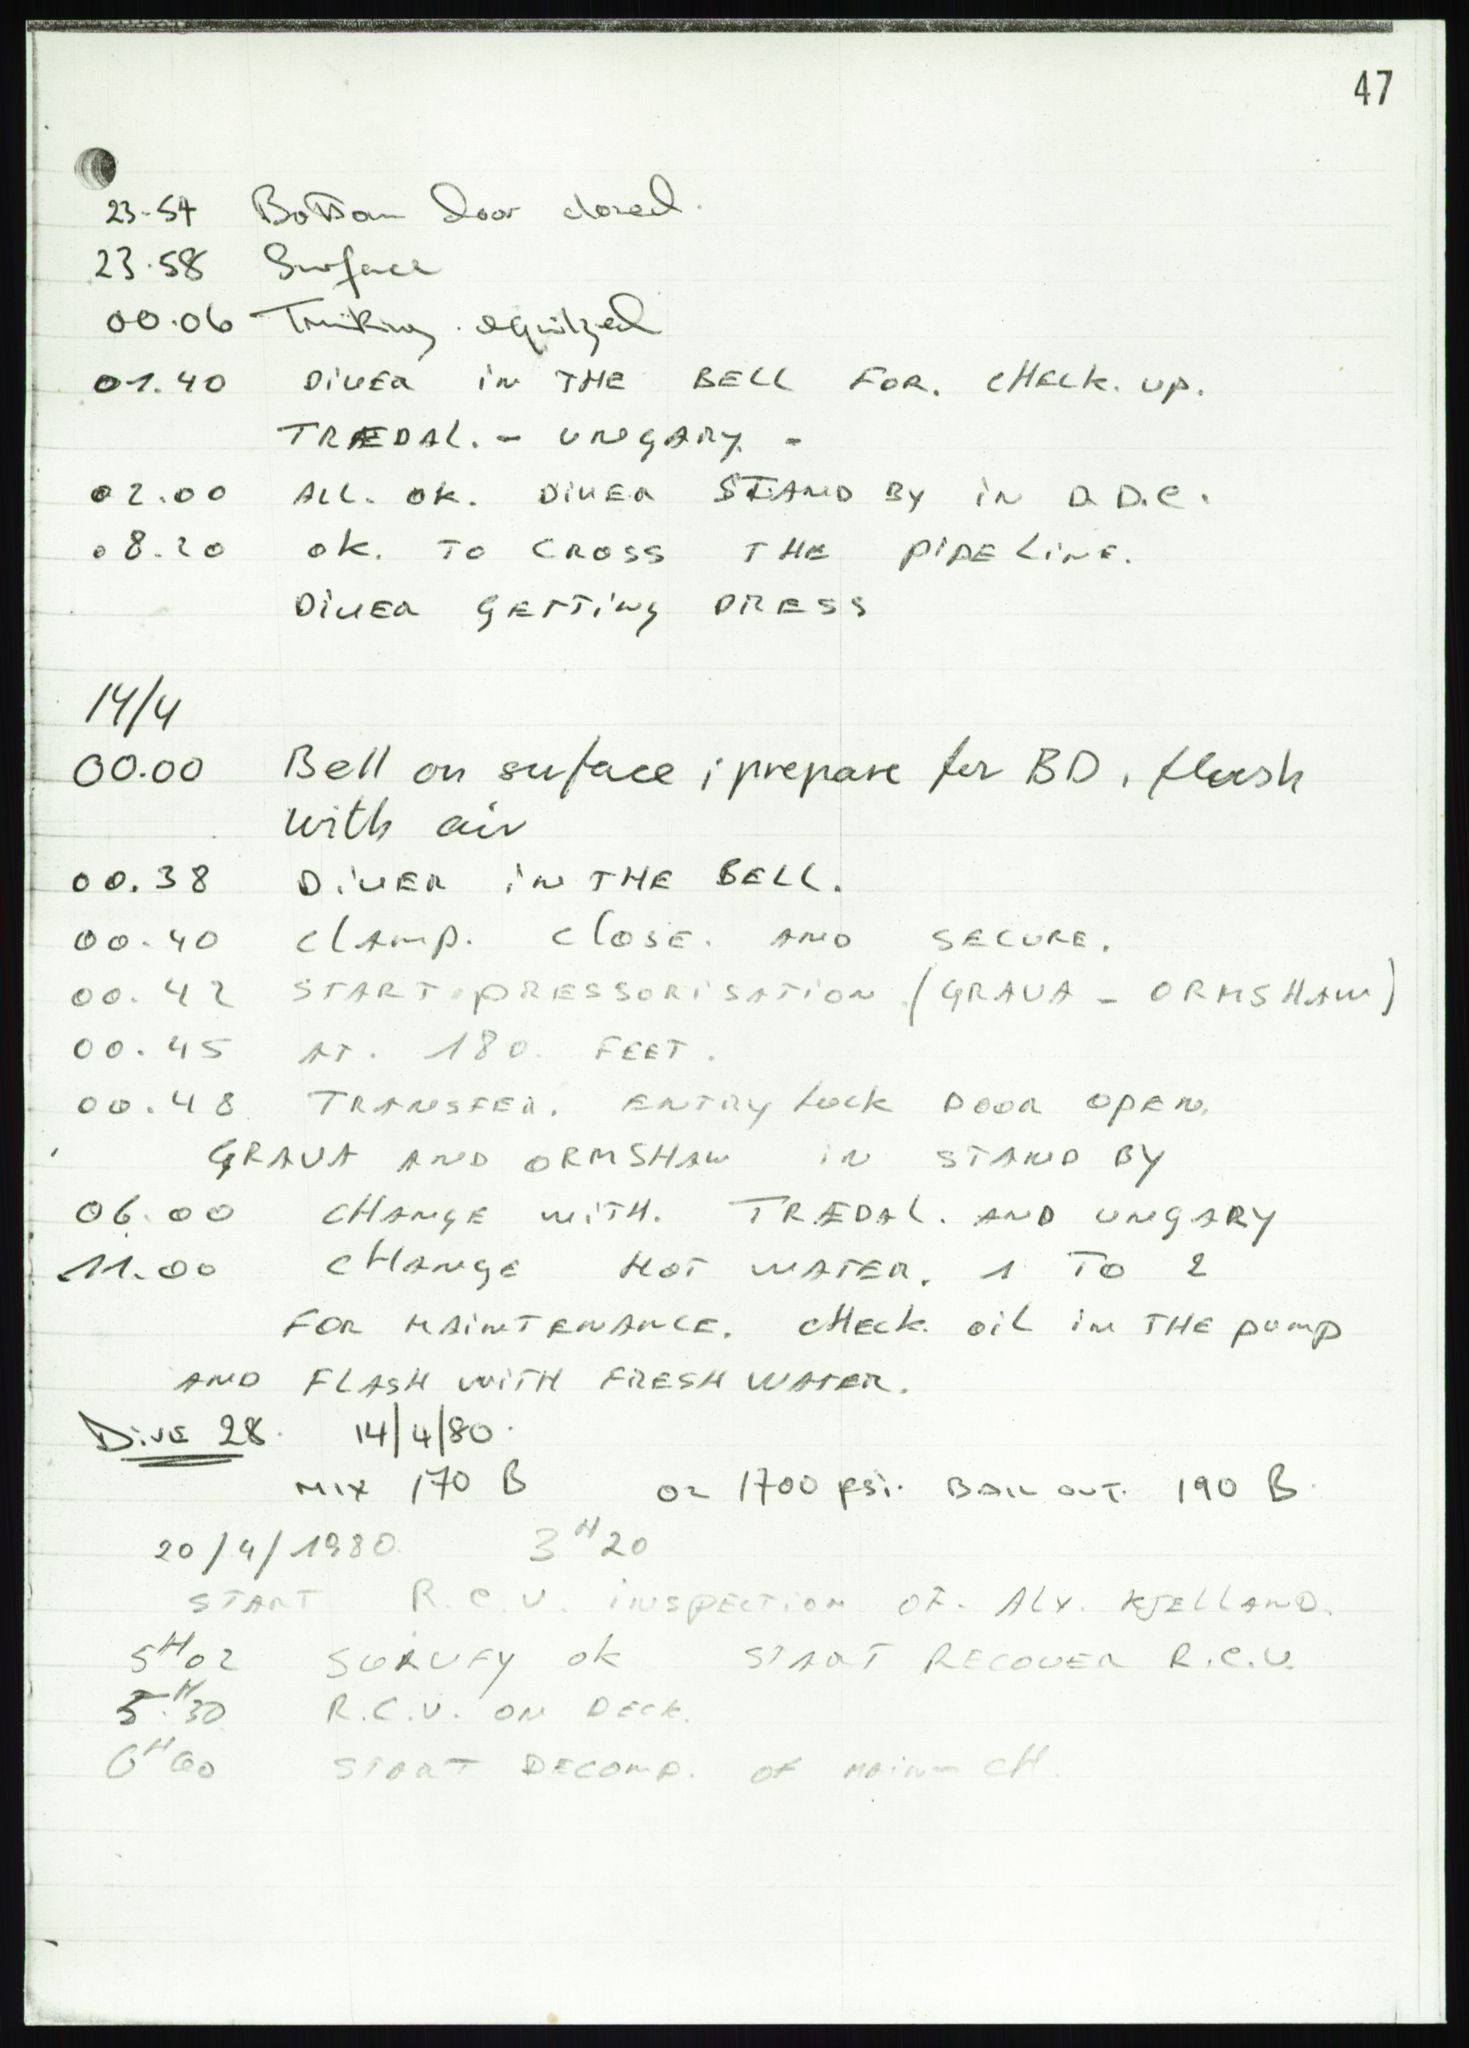 47
23-54 Bottom door closed.
23.58 Surface
00.06 Trunking equilized
01.40 DIVER IN THE BELL FOR. CHECK. UP.
TRÆDAL. - UNGARY. -
02.00 ALL. OK. DIVER STAND BY IN D.D.C.
08.20 OK. TO CROSS THE PIPELINE.
DIVER GETTING DRESS
14/4
00.00 Bell on surface ; prepare for BD, flush
with air
00.38 DIVER IN THE BELL.
00.40 CLAMP. CLOSE. AND SECURE.
00.42 START.PRESSORISATION (GRAVA - ORMSHAW)
00.45 AT. 180. FEET.
00.48 TRANSFER. ENTRY LOCK DOOR OPEN.
GRAVA AND ORMSHAW IN STAND BY
06.00 CHANGE WITH. TRÆDAL. AND UNGARY
11.00 CHANGE HOT WATER. 1 TO 2
FOR MAINTENANCE. CHECK. OIL IN THE PUMP
AND FLASH WITH FRESH WATER.
DIVE 28. 14/4/80.
MIX 170 B O2 1700 PSI. BAIL OUT. 190 B.
20/4/1980. 3H20
START R.C.V. INSPECTION OF. ALX. KJELLAND.
5H02 SURVEY OK START RECOVER R.C.V.
5.H30 R.C.V. ON DECK.
6H00 START DECOMP. OF MAIN-CH.